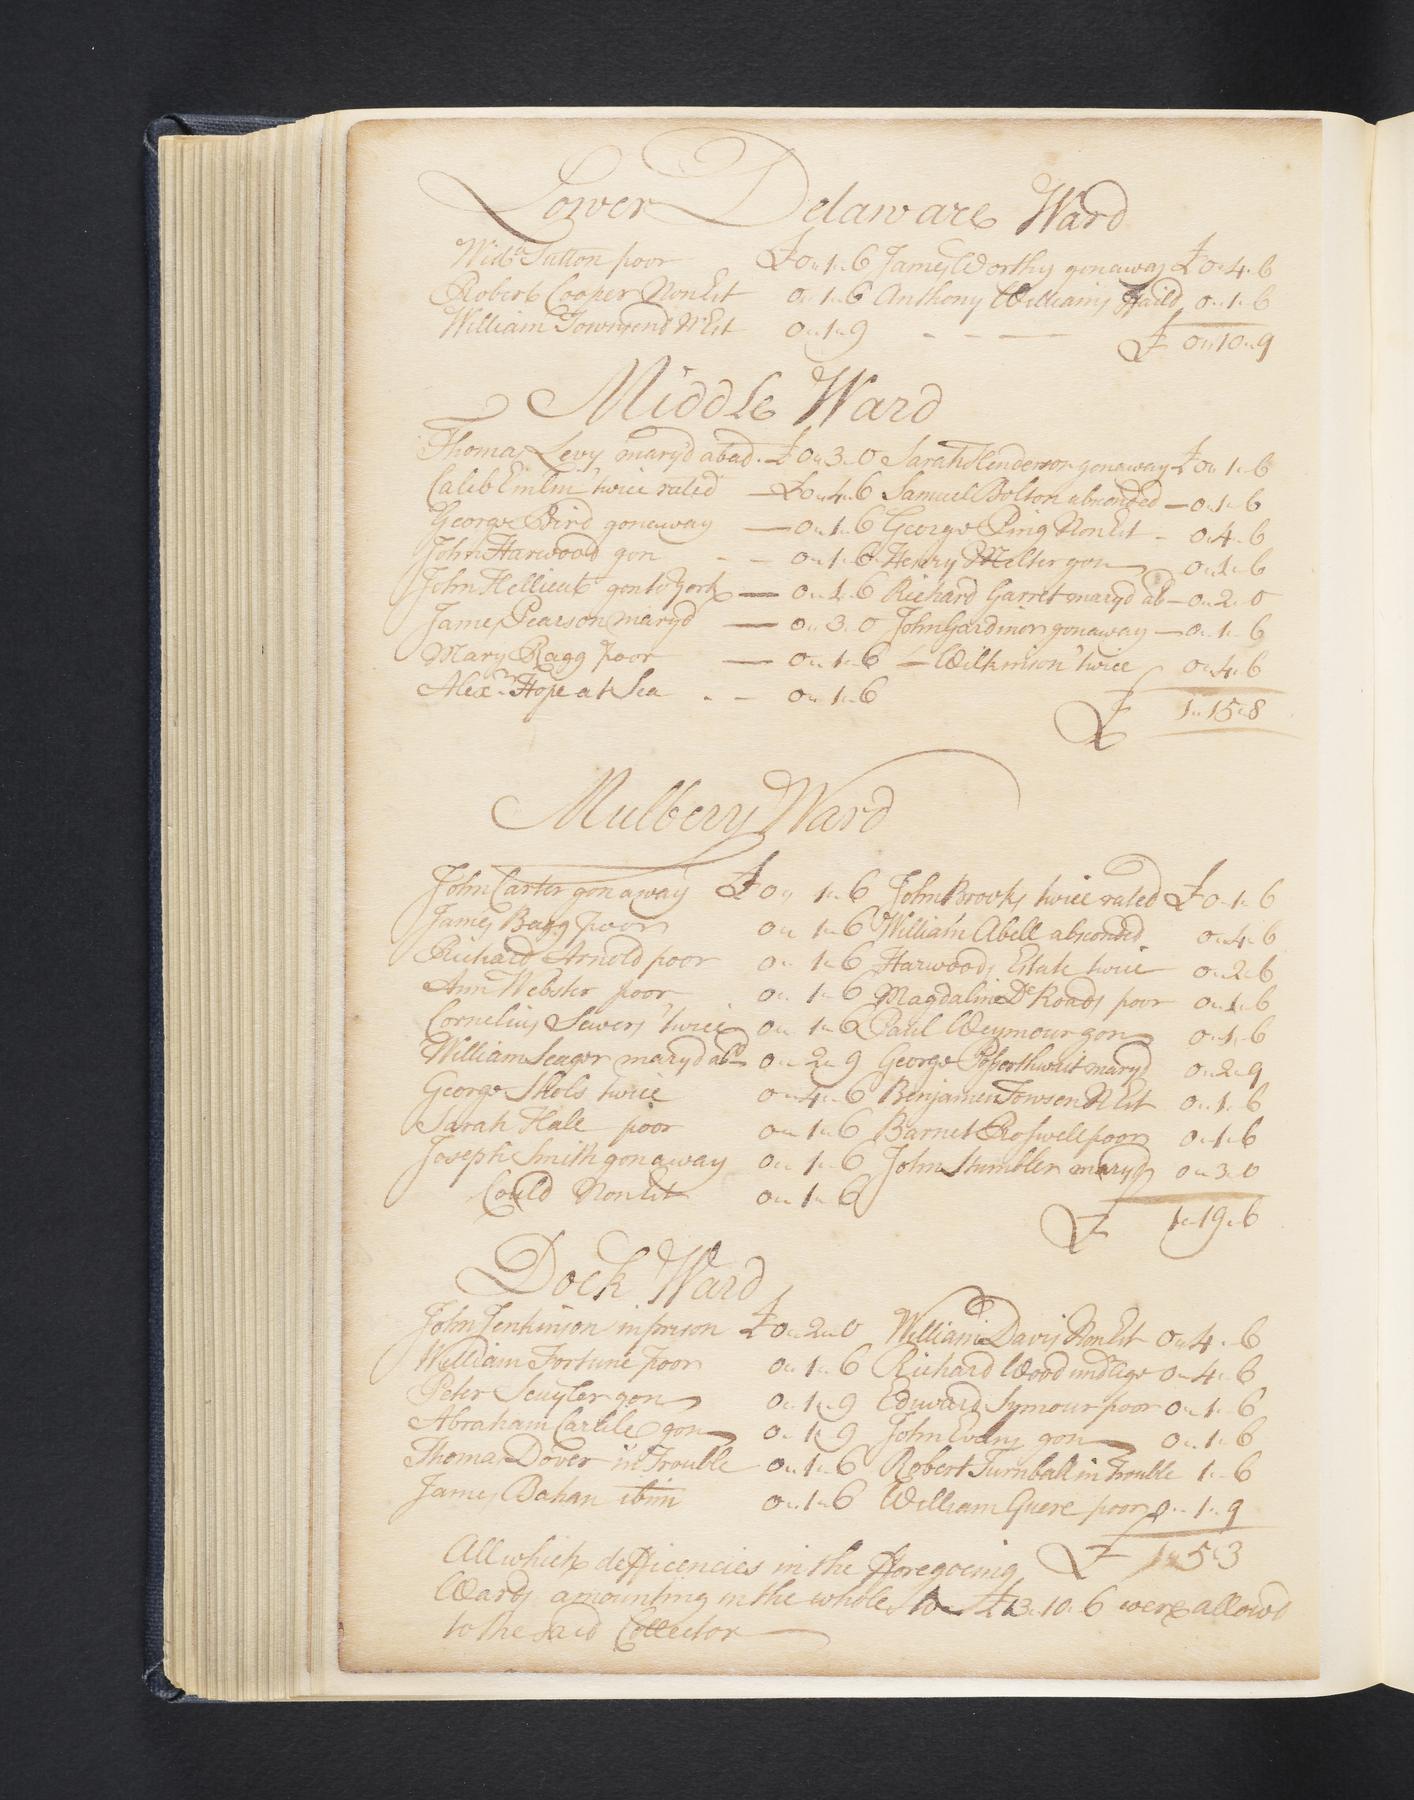 Lower Delaware Ward
Wid.º Sutton poor £0"1"6 James Worthy gonaway £0"4"6
Robert Cooper Non Est 0"1"6 Anthony Williams ffaild 0"1"6
William Townsend N Est 0"1"9 £ 0"10"9
Middle Ward
Thomas Levy maryd abad. £0"3"0 Sarah Henderson gonaway £0"1"6
Caleb Emlin twice rated £0"4"6 Samuel Bolton absconded 0"1"6
George Bird gonaway 0"1"6 George Ring Non Est 0"4"6
John Harwood gon 0"1"6 Henry Melter gon 0"1"6
John Hellicut gon to York 0"1"6 Richard Garret maryd ab 0"2"0
James Pearson maryd 0"3"0 John Gardinor gonaway 0"1"6
Mary Ragg poor 0"1"6 — Wilkinson twice 0"4"6
Alexr. Hope at Sea 0"1"6 £ 1"15"8
Mulbery Ward
John Carter gonaway £0" 1"6 John Brooks twice rated £0"1"6
James Bagg poor 0" 1"6 William Abell absconded 0"4"6
Richard Arnold poor 0" 1"6 Harwoods Estate twice 0"2"6
Ann Webster poor 0" 1"6 Magdaline De Roads poor 0"1"6
Cornelius Sewers twice 0" 1"6 Paul Weymour gon 0"1"6
William Seager maryd abd 0"2"9 George maryd 0"2"9
George Skols twice 0"4"6 Benjamen Towson N Est 0"1"6
Sarah Hale poor 0"1"6 Barnet Roswell poor 0"1"6
Joseph Smith gonaway 0"1"6 John Stumbler maryd 0"3"0
Could Non Est 0"1"6 £ 1"19"6
Dock Ward
John Jenkinson in prison £0"2"0 William Davis Non Est 0"4"6
William Fortune poor 0"1"6 Richard Wood undr Age 0"4"6
Peter Scuyler gon 0"1"9 Edward Symour poor 0"1"6
Abraham Carlile gon 0"1"9 John Evans gon 0"1"6
Thomas Dover in Trouble 0"1"6 Robert Turnball in Trouble 1"6
James Bahan ibim 0"1"6 William Guere poor 0"1"9
All which defficencies in the fforegoeing £ 1"5"3
Wards amounting in the whole to £13"10"6 were allowd
to the said Collector